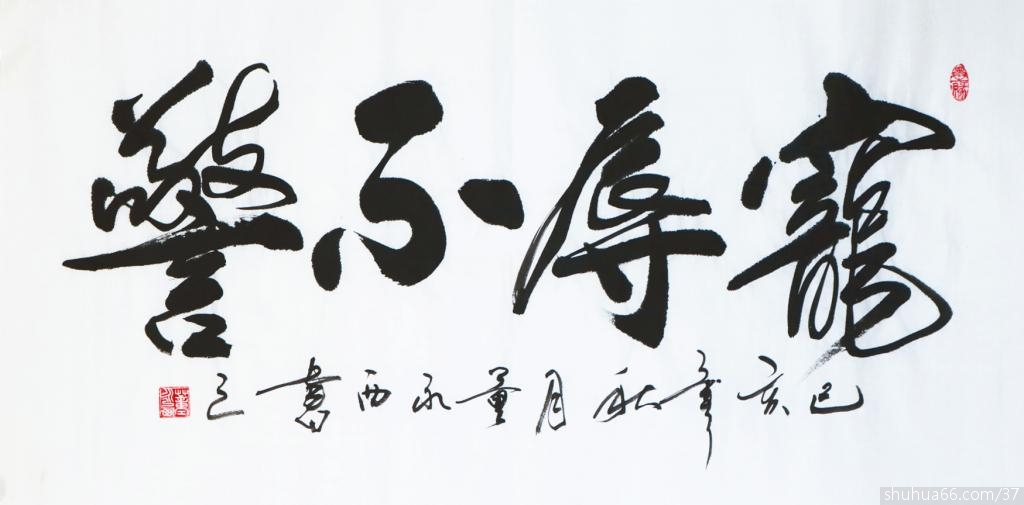 寵辱不警
己亥年秋月董永西書之
shuhua66.com/37